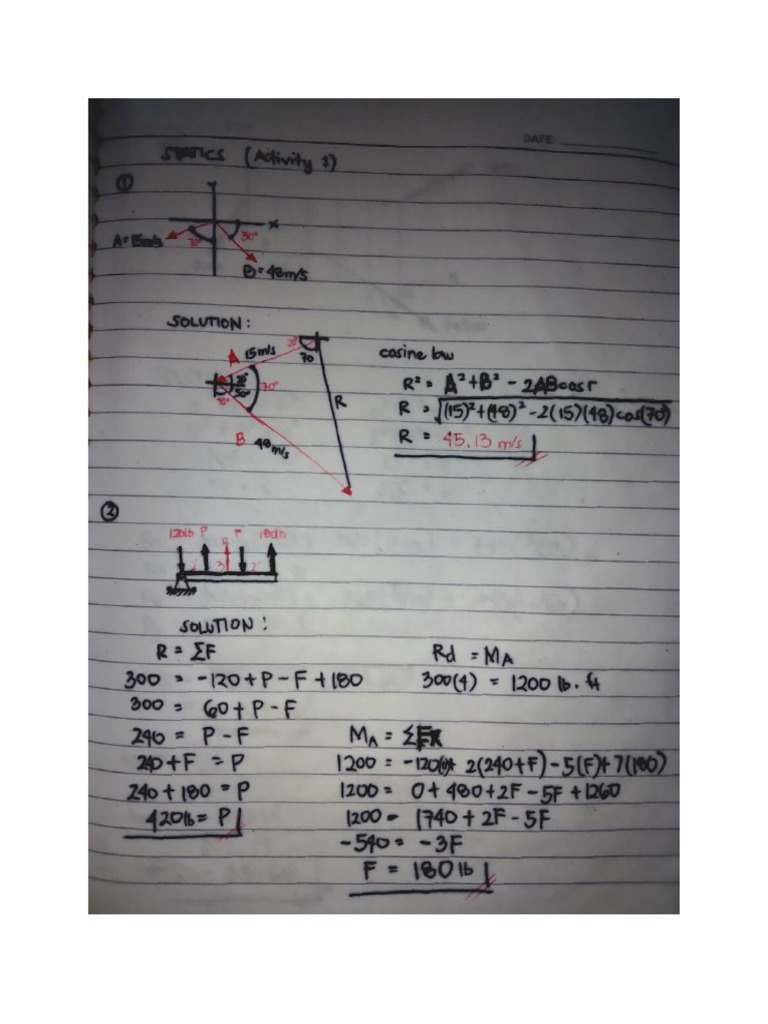 DATE:
STATICS (Activity 2)
①
Y
X
A = 15m/s
70°
50°
B = 48m/s
SOLUTION:
20°
70
A 15m/s
20°
50°
70°
R
B 48m/s
cosine law
R² = A² + B² - 2ABcosr
R = √(15)² + (48)² - 2(15)(48)cos(70°)
R = 45.13 m/s
②
120lb P R F 180lb
2' 3' 2'
SOLUTION:
R = ΣF
300 = -120 + P - F + 180
300 = 60 + P - F
240 = P - F
240 + F = P
240 + 180 = P
420lb = P
Rd = MA
300(4) = 1200 lb. ft
MA = ΣFx
1200 = -120(0) + 2(240+F) - 5(F) + 7(180)
1200 = 0 + 480 + 2F - 5F + 1260
1200 = 1740 + 2F - 5F
-540 = -3F
F = 180 lb